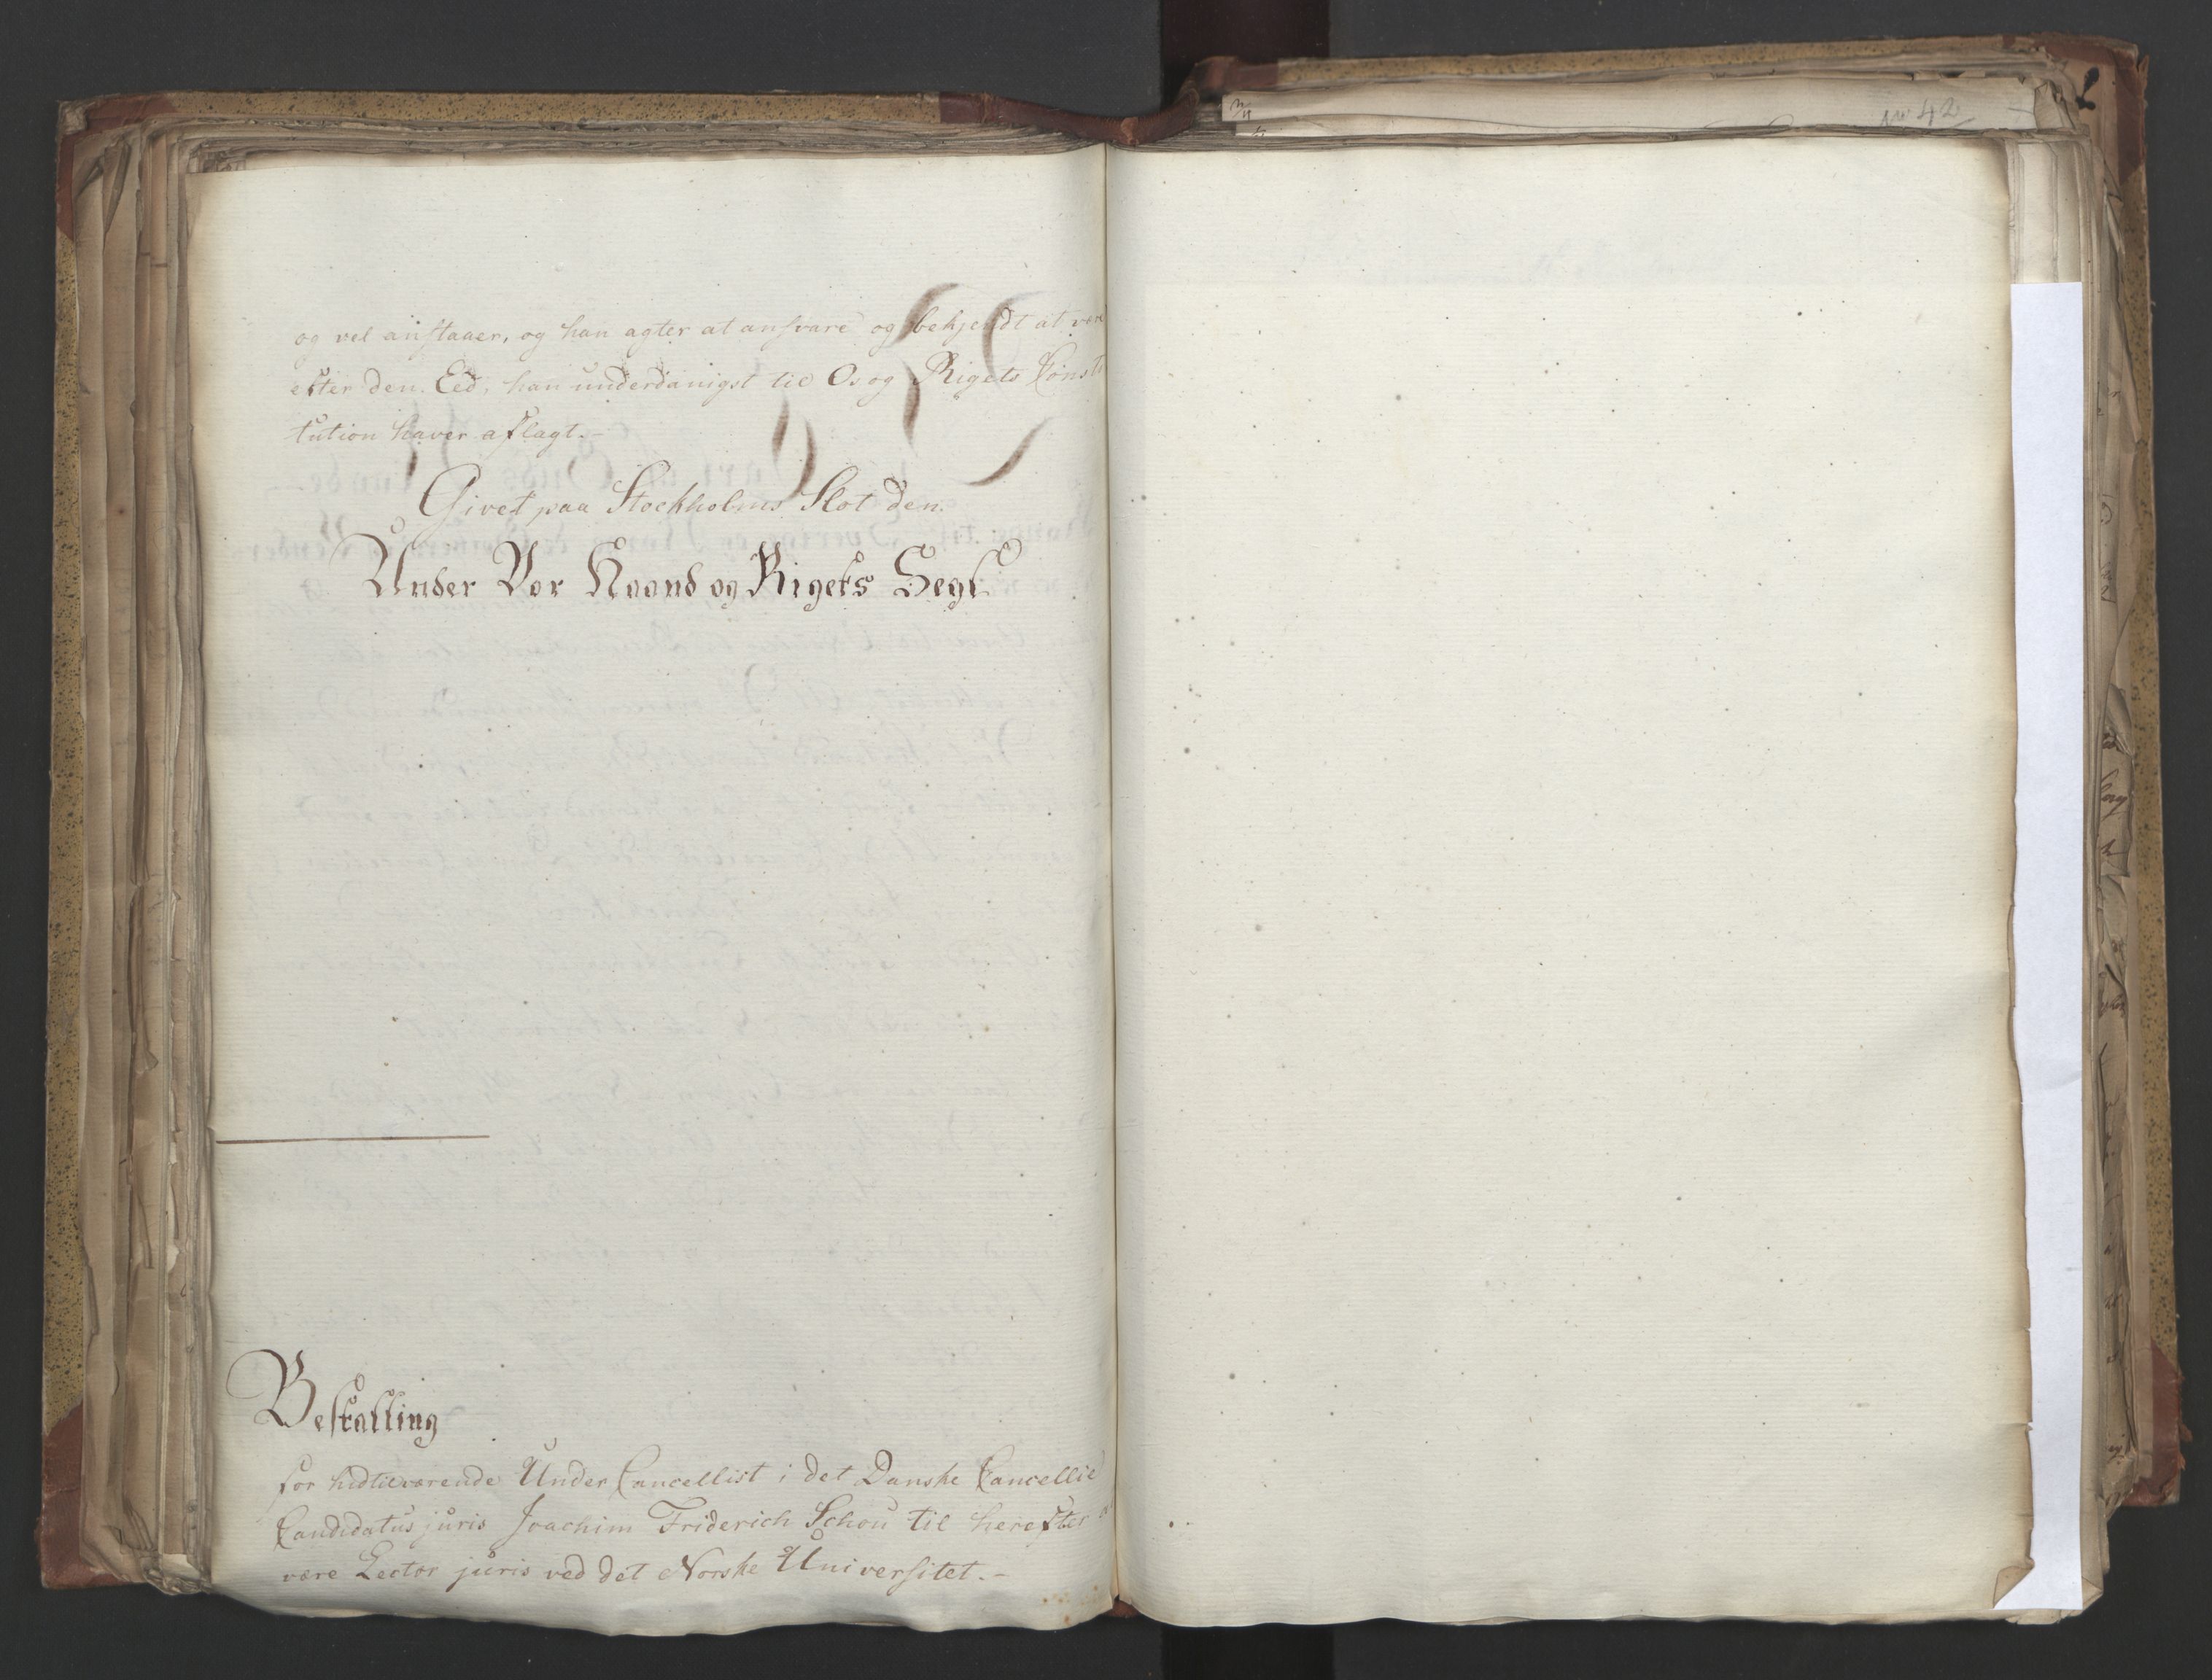 og vel anstaaer, og han agter at ansvare og bekjendt at være
efter den Eed, han underdanigst til Os og Rigets Consti
tution haver aflagt.-
Givet paa Stockholms Slot den.
Under Vor Haand og Rigets Segl
Bestalling
for hidtilværende Under Cancellist i det Danske Cancellie
Candidatus juris Joachim Friderich Schou til herefter at
være Lector juris ved det Norske Universitet.-
No 42